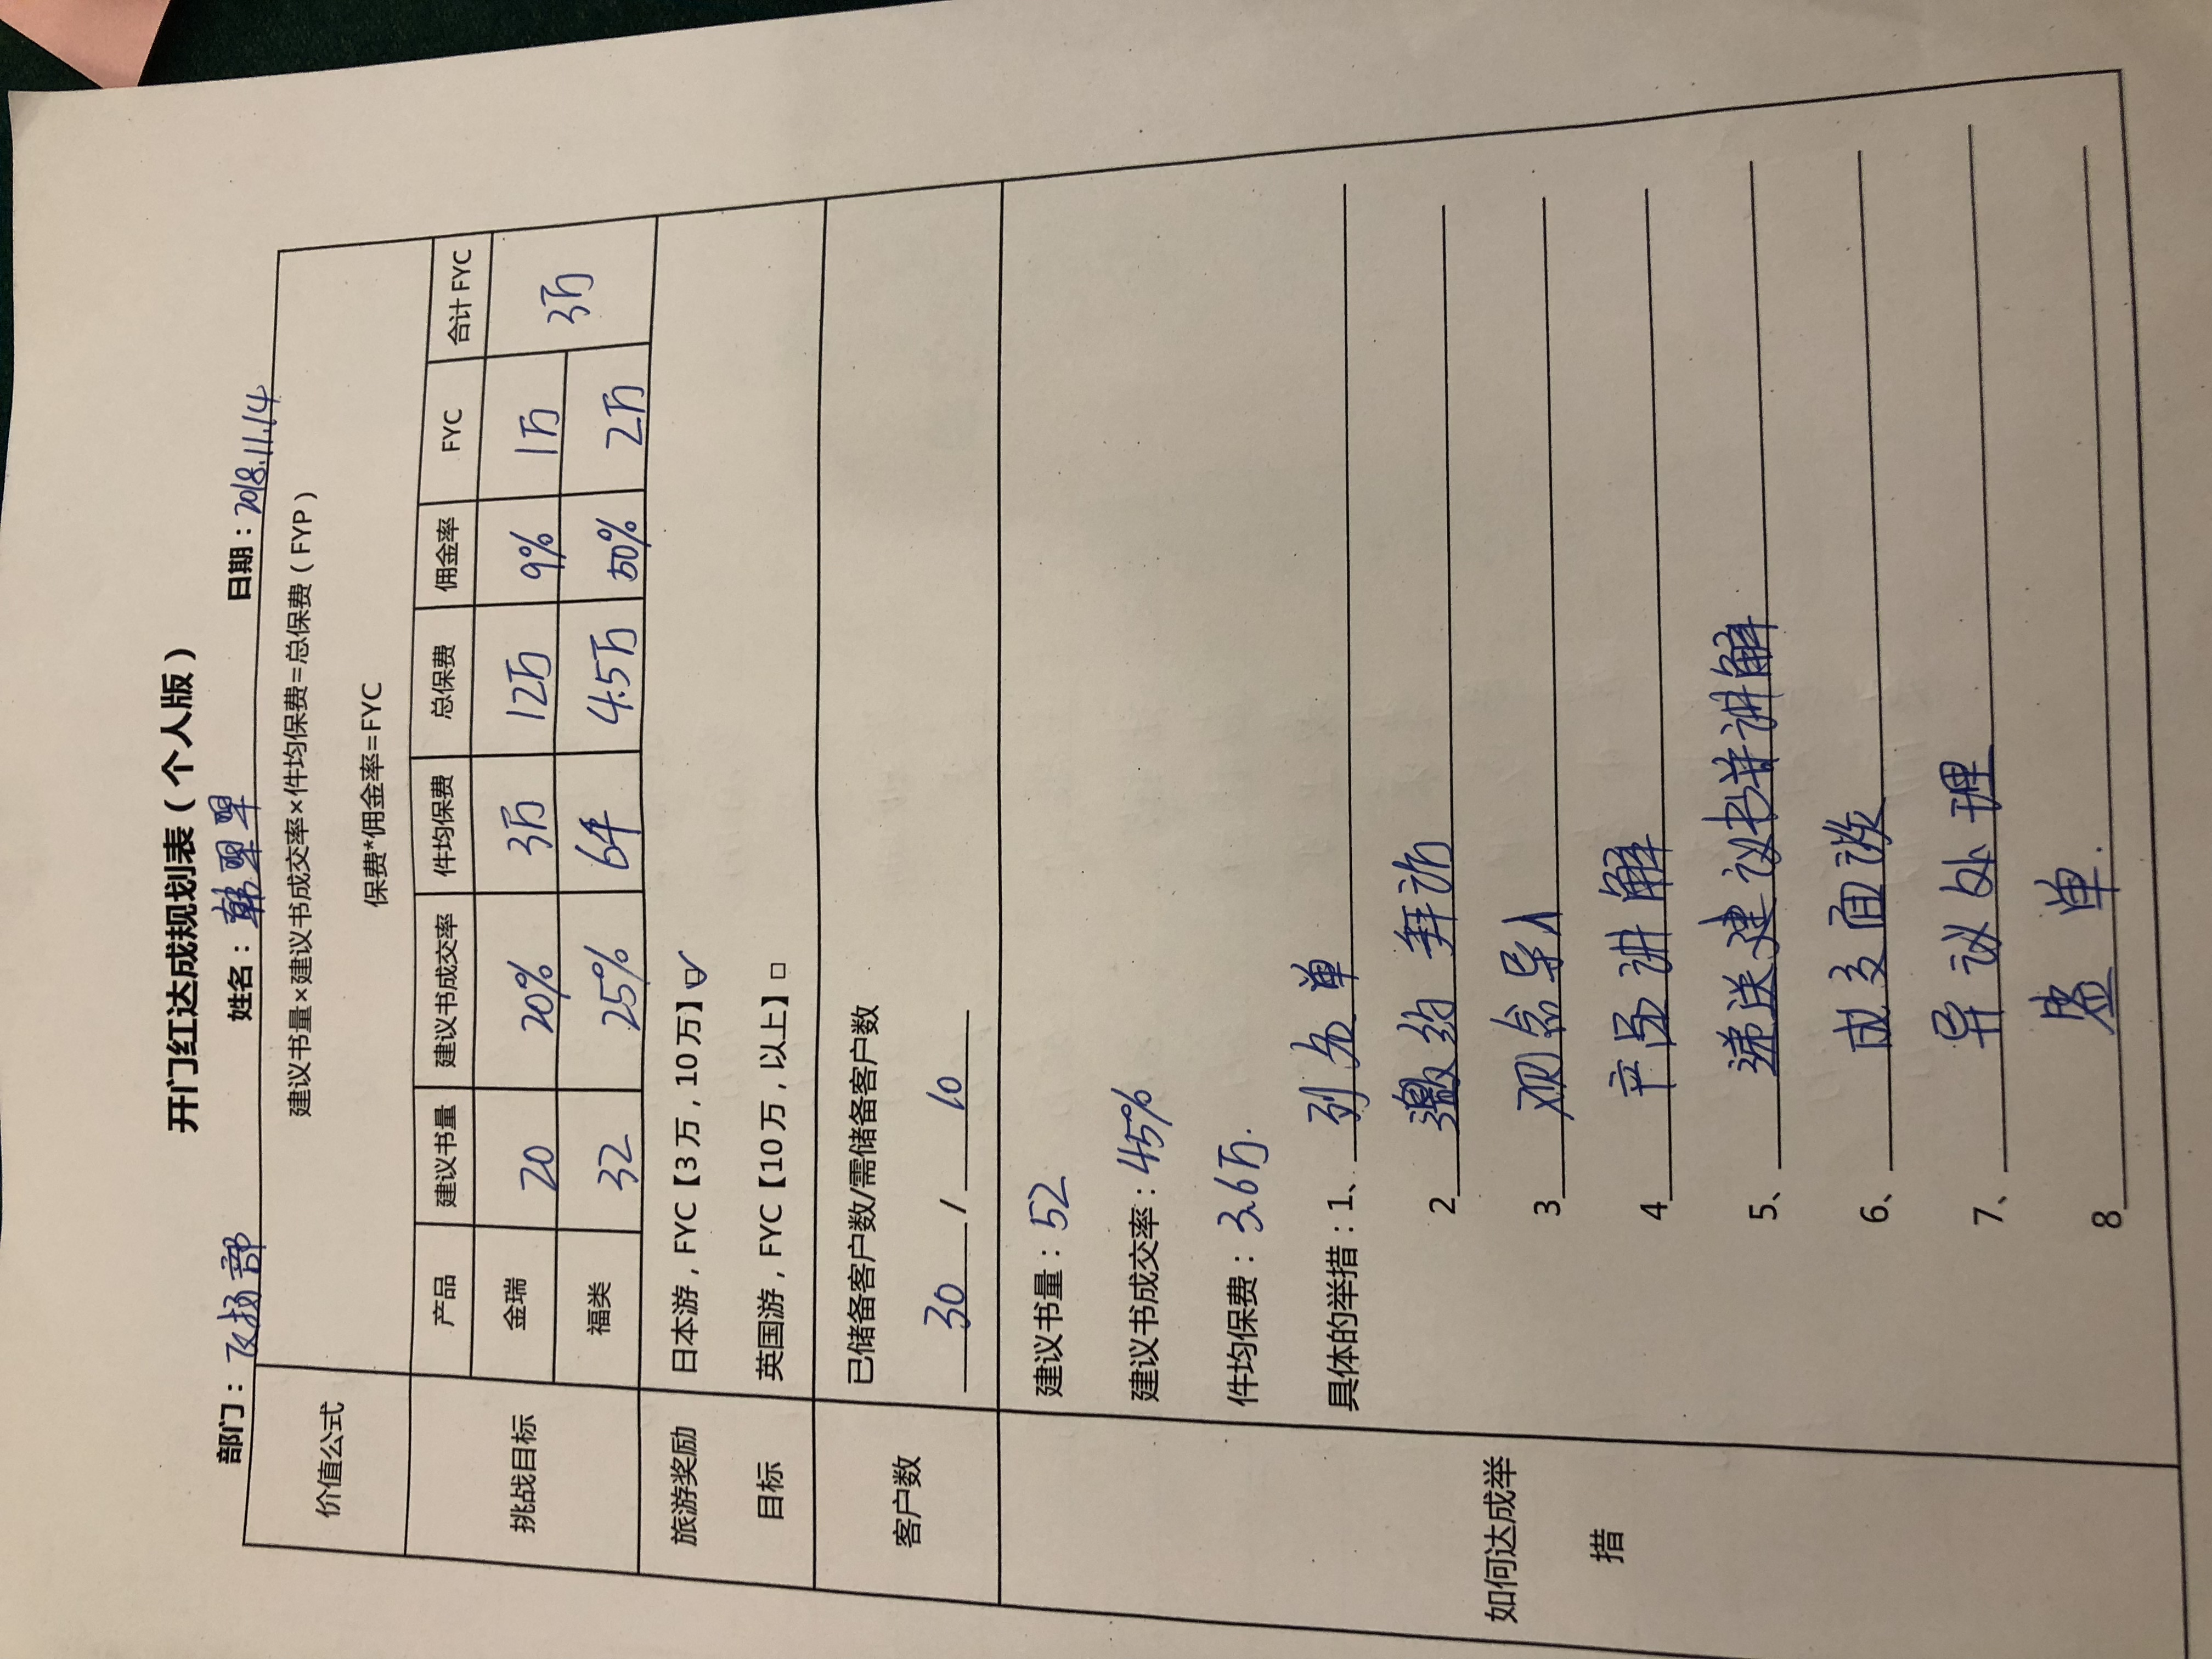 开门红达成规划表（个人版）
部门：飞扬部 姓名：韩翠翠 日期：2018.11.14
价值公式 建议书量×建议书成交率×件均保费=总保费（FYP）
保费*佣金率=FYC
挑战目标 产品 建议书量 建议书成交率 件均保费 总保费 佣金率 FYC 合计 FYC
金瑞 20 20% 3万 12万 9% 1万 3万
福类 32 25% 6千 4.5万 50% 2万
旅游奖励 日本游，FYC【3 万，10 万】☑
目标 英国游，FYC【10 万，以上】□
客户数 已储备客户数/需储备客户数
30 / 10
如何达成举措 建议书量：52
建议书成交率：45%
件均保费：3.6万.
具体的举措：1、列名单
2 邀约拜访
3 观念导入
4 产品讲解
5、递送建议书并讲解
6、成交面谈
7、异议处理
8 单.